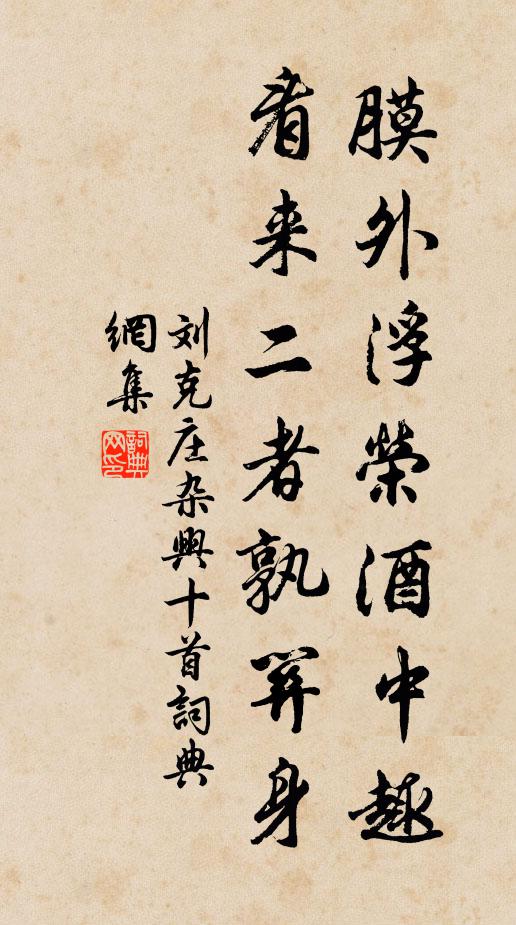 膜外浮榮酒中趣
看来二者孰關身
刘克庄杂興十首詞典
網集
詞典
网印